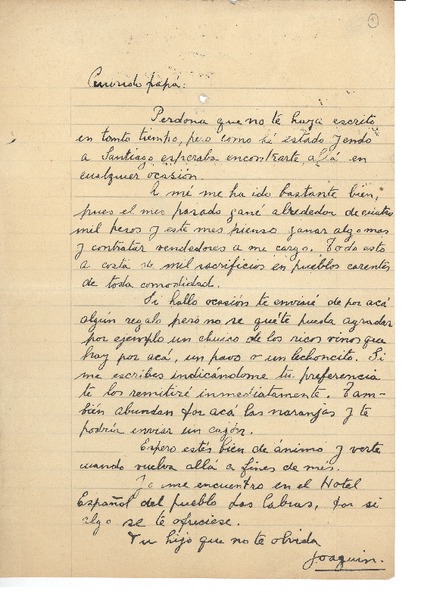 1
Querido papá:
Perdona que no te haya escrito
en tanto tiempo, pero como he estado yendo
a Santiago esperaba encontrarte allá en
cualquier ocasión.
A mí me ha ido bastante bien,
pues el mes pasado gané alrededor de cuatro
mil pesos y este mes pienso ganar algo mas
y contratar vendedores a mi cargo. Todo esto
a costa de mil sacrificios en pueblos carentes
de toda comodidad.
Si hallo ocasión te enviaré de por acá
algún regalo pero no se qué te pueda agradar
por ejemplo un chuico de los ricos vinos que
hay por acá, un pavo o un lechoncito. Si
me escribes indicándome tu preferencia
te los remitiré inmediatamente. Tam-
bién abundan por acá las naranjas y te
podría enviar un cajón.
Espero estés bien de ánimo y verte
cuando vuelva allá a fines de mes.
Yo me encuentro en el Hotel
Español del pueblo Las Cabras, por si
algo se te ofreciese.
Tu hijo que no te olvida
Joaquín.